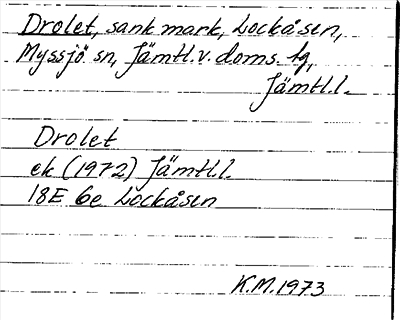 Drolet, sank mark, Lockåsen,
Myssjö sn, Jämtl.v. doms. tg,
Jämtl.l.
Drolet
ek (1972) Jämtl.l.
18E 6e Lockåsen
K.M. 1973